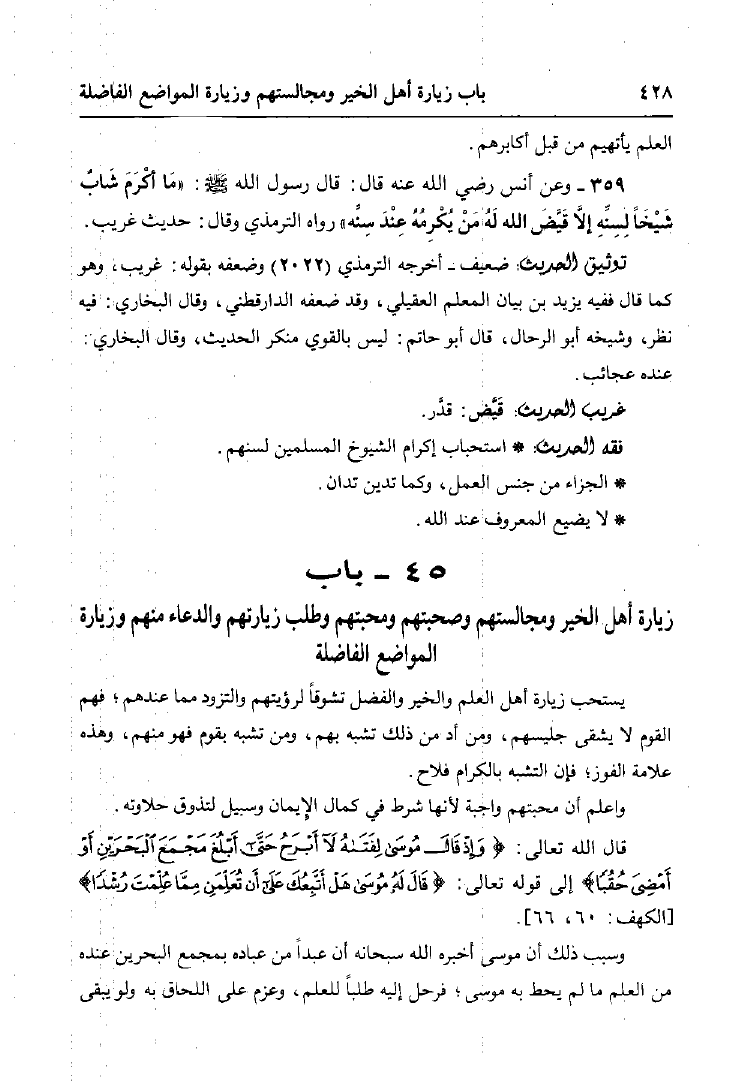 ٤٢٨ باب زيارة أهل الخير ومجالستهم وزيارة المواضع الفاضلة
العلم يأتهيم من قبل أكابرهم.
٣٥٩ ـ وعن أنس رضي الله عنه قال: قال رسول الله ﷺ: «مَا أكْرَمَ شَابٌ
شَيْخَاً لِسِنِّهِ إلاَّ قَيَّضَ الله لَهُ مَنْ يُكْرِمُهُ عِنْدَ سِنِّه» رواه الترمذي وقال: حديث غريب.
توثيق الحديث: ضعيف ـ أخرجه الترمذي (٢٠٢٢) وضعفه بقوله: غريب، وهو
كما قال ففيه يزيد بن بيان المعلم العقيلي، وقد ضعفه الدارقطني، وقال البخاري: فيه
نظر، وشيخه أبو الرحال، قال أبو حاتم: ليس بالقوي منكر الحديث، وقال البخاري:
عنده عجائب.
غريب الحديث: قَيَّض: قدَّر.
فقه الحديث: * استحباب إكرام الشيوخ المسلمين لسنهم.
* الجزاء من جنس العمل، وكما تدين تدان.
* لا يضيع المعروف عند الله.
٤٥ ـ باب
زيارة أهل الخير ومجالستهم وصحبتهم ومحبتهم وطلب زيارتهم والدعاء منهم وزيارة
المواضع الفاضلة
يستحب زيارة أهل العلم والخير والفضل تشوقاً لرؤيتهم والتزود مما عندهم؛ فهم
القوم لا يشقى جليسهم، ومن أد من ذلك تشبه بهم، ومن تشبه بقوم فهو منهم، وهذه
علامة الفوز؛ فإن التشبه بالكرام فلاح.
واعلم أن محبتهم واجبة لأنها شرط في كمال الإيمان وسبيل لتذوق حلاوته.
قال الله تعالى: ﴿وَإِذْ قَالَ مُوسَىٰ لِفَتَىٰهُ لَآ أَبْرَحُ حَتَّىٰٓ أَبْلُغَ مَجْمَعَ ٱلْبَحْرَيْنِ أَوْ
أَمْضِيَ حُقُبًا﴾ إلى قوله تعالى: ﴿قَالَ لَهُۥ مُوسَىٰ هَلْ أَتَّبِعُكَ عَلَىٰٓ أَن تُعَلِّمَنِ مِمَّا عُلِّمْتَ رُشْدًا﴾
[الكهف: ٦٠، ٦٦].
وسبب ذلك أن موسى أخبره الله سبحانه أن عبداً من عباده بمجمع البحرين عنده
من العلم ما لم يحط به موسى؛ فرحل إليه طلباً للعلم، وعزم على اللحاق به ولو يبقى